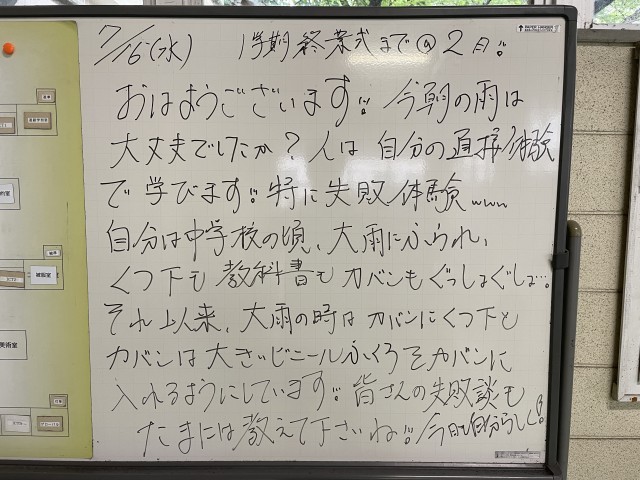 7/16(水) 1学期終業式まで@2日!!
おはようございます!! 今朝の雨は
大丈夫でしたか?人は自分の直接体験
で学びます!! 特に失敗体験www
自分は中学校の頃、大雨にふられ、
くつ下も教科書もカバンもぐっしょぐしょ…。
それ以来、大雨の時はカバンにくつ下と
カバンは大きいビニールふくろをカバンに
入れるようにしています!! 皆さんの失敗談も
たまには教えて下さいね!! 今日も自分らしく!
美術室